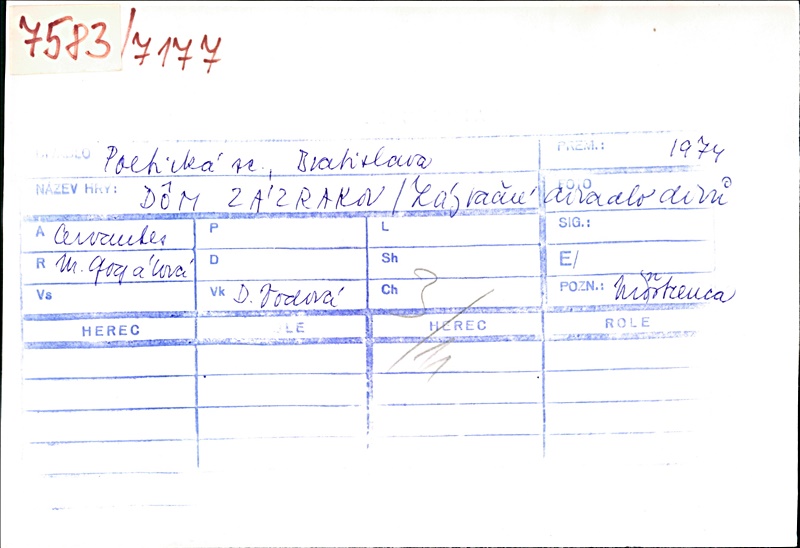 7583/7177
DIVADLO Poetická sc., Bratislava PREM.: 1974
NÁZEV HRY: DÔM ZÁZRAKOV / Zázračné divadlo divů FOTO
A Cervantes P L SIG.:
R M. Gogálová D Sh E/
Vs Vk D. Vodová Ch POZN.:
HEREC ROLE HEREC ROLE
3/